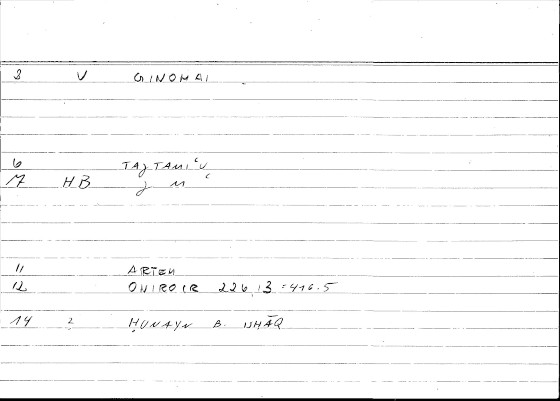 3 V GINOMAI
6 TAJTAMIʿU
17 HB J M ʿ
11 ARTEM
12 ONIROCR 226,13 = 416.5
14 2 ḤUNAYN B. ISḤĀQ